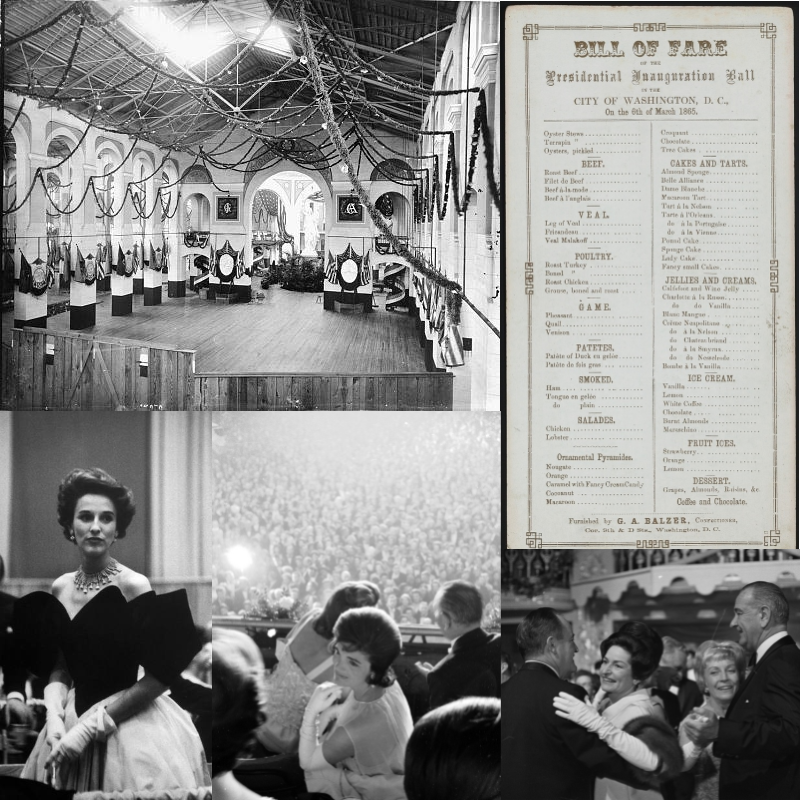 BILL OF FARE
OF THE
Presidential Inauguration Ball
IN THE
CITY OF WASHINGTON, D. C.,
On the 6th of March 1865.
Oyster Stews
Terrapin "
Oysters, pickled
BEEF.
Roast Beef
Filet de Beef
Beef à-la-mode
Beef à l'anglais
VEAL.
Leg of Veal
Fricandeau
Veal Malakoff
POULTRY.
Roast Turkey
Boned "
Roast Chicken
Grouse, boned and roast
GAME.
Pheasant
Quail
Venison
PATETES.
Patête of Duck en gelée
Patête de fois gras
SMOKED.
Ham
Tongue en gelée
do plain
SALADES.
Chicken
Lobster
Ornamental Pyramides.
Nougate
Orange
Caramel with Fancy Cream Candy
Cocoanut
Macaroon
Croquant
Chocolate
Tree Cakes
CAKES AND TARTS.
Almond Sponge
Belle Alliance
Dame Blanche
Macaroon Tart
Tart à la Nelson
Tarte à l'Orleans
do à la Portugaise
do à la Vienne
Pound Cake
Sponge Cake
Lady Cake
Fancy small Cakes
JELLIES AND CREAMS.
Calfsfoot and Wine Jelly
Charlotte à la Russe
do do Vanilla
Blanc Mangue
Crême Neapolitane
do à la Nelson
do Chateaubriand
do à la Smyrna
do do Nesselrode
Bombe à la Vanilla
ICE CREAM.
Vanilla
Lemon
White Coffee
Chocolate
Burnt Almonds
Maraschino
FRUIT ICES.
Strawberry
Orange
Lemon
DESSERT.
Grapes, Almonds, Raisins, &c
Coffee and Chocolate.
Furnished by G. A. BALZER, CONFECTIONER,
Cor. 9th & D Sts., Washington, D. C.